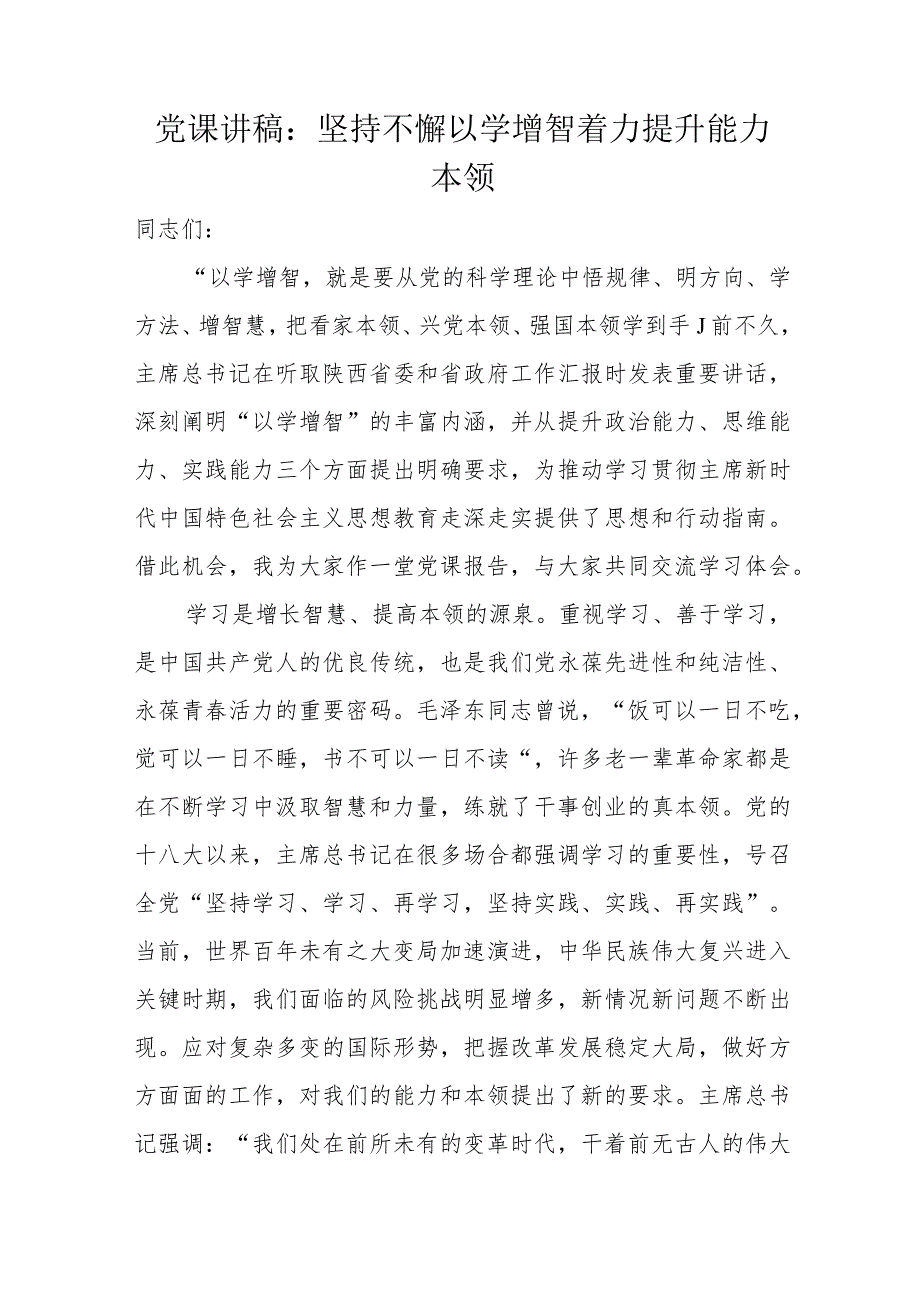 党课讲稿：坚持不懈以学增智着力提升能力
本领
同志们：
“以学增智，就是要从党的科学理论中悟规律、明方向、学
方法、增智慧，把看家本领、兴党本领、强国本领学到手J前不久，
主席总书记在听取陕西省委和省政府工作汇报时发表重要讲话，
深刻阐明“以学增智”的丰富内涵，并从提升政治能力、思维能
力、实践能力三个方面提出明确要求，为推动学习贯彻主席新时
代中国特色社会主义思想教育走深走实提供了思想和行动指南。
借此机会，我为大家作一堂党课报告，与大家共同交流学习体会。
学习是增长智慧、提高本领的源泉。重视学习、善于学习，
是中国共产党人的优良传统，也是我们党永葆先进性和纯洁性、
永葆青春活力的重要密码。毛泽东同志曾说，“饭可以一日不吃，
觉可以一日不睡，书不可以一日不读“，许多老一辈革命家都是
在不断学习中汲取智慧和力量，练就了干事创业的真本领。党的
十八大以来，主席总书记在很多场合都强调学习的重要性，号召
全党“坚持学习、学习、再学习，坚持实践、实践、再实践”。
当前，世界百年未有之大变局加速演进，中华民族伟大复兴进入
关键时期，我们面临的风险挑战明显增多，新情况新问题不断出
现。应对复杂多变的国际形势，把握改革发展稳定大局，做好方
方面面的工作，对我们的能力和本领提出了新的要求。主席总书
记强调：“我们处在前所未有的变革时代，干着前无古人的伟大